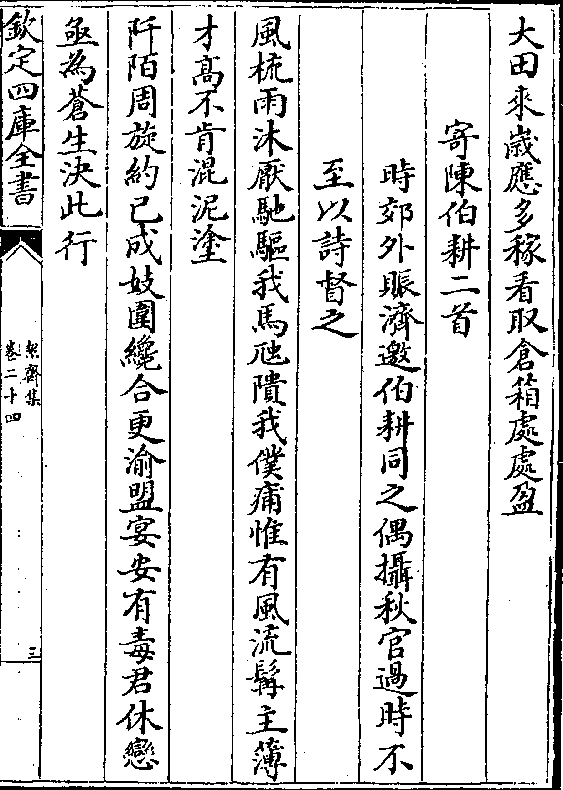 大田來嵗應多稼看取倉箱處處盈
寄陳伯耕二首
時郊外賑濟邀伯耕同之偶攝秋官過時不
至以詩督之
風梳雨沐厭馳驅我馬虺隤我僕痡惟有風流髯主簿
才髙不肯混泥塗
阡陌周旋約已成妓圍纔合更渝盟宴安有毒君休戀
亟為蒼生決此行
欽定四庫全書
絜齋集
卷二十四
三